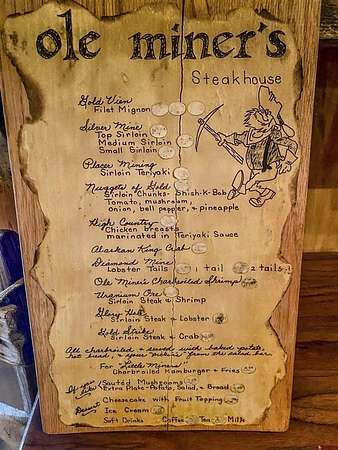 ole miner's
Steakhouse
Gold Vien
Filet Mignon
Silver Mine
Top Sirloin
Medium Sirloin
Small Sirloin
Placer Mining
Sirloin Teriyaki
Nuggets of Gold
Sirloin Chunks - Shish-K-Bob
Tomato, mushroom,
onion, bell pepper, & pineapple
High Country
Chicken breasts
marinated in Teriyaki Sauce
Alaskan King Crab
Diamond Mine
Lobster Tails 1 tail 2 tails
Ole Miner's Charbroiled Shrimp
Uranium Ore
Sirloin Steak & Shrimp
Glory Hole
Sirloin Steak & Lobster
Gold Strike
Sirloin Steak & Crab
All charbroiled & served with baked potato,
hot bread, & your from the salad bar.
For "Little Miners"
Charbroiled Hamburger & Fries
If you like Sautéd Mushrooms
Extra Plate - Potato, Salad, & Bread
Dessert Cheesecake with Fruit Topping
Ice Cream
Soft Drinks Coffee Tea Milk